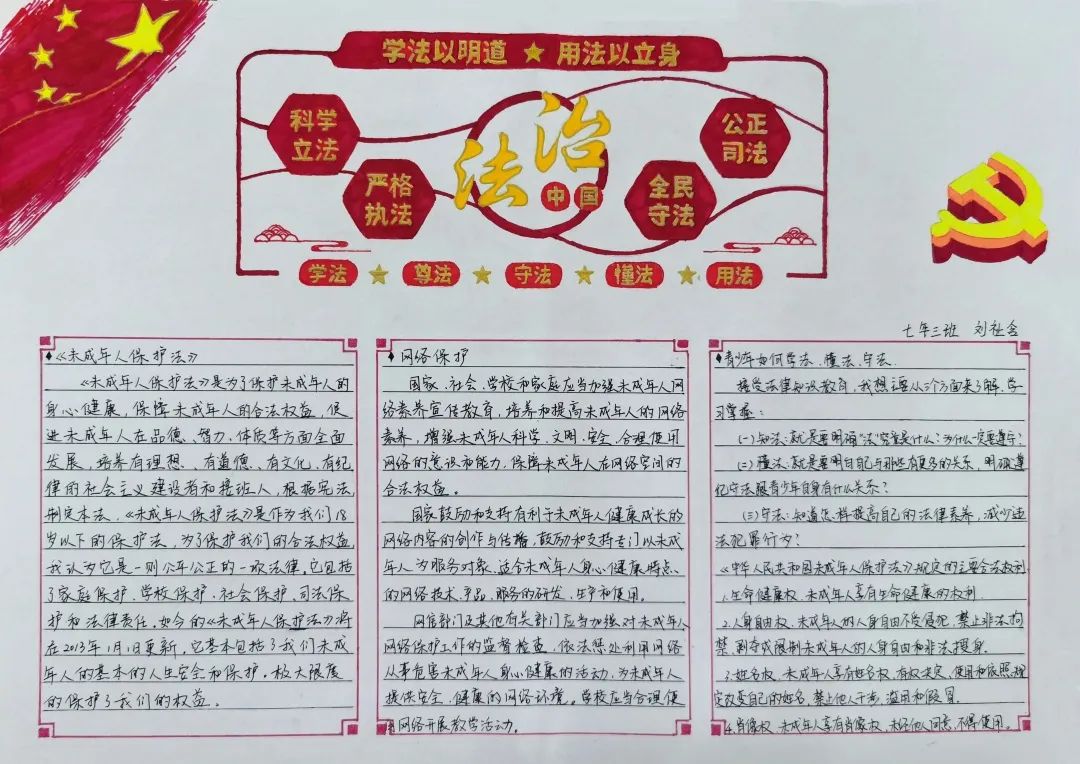 学法以明道 用法以立身
科学
立法
严格
执法
法治
中国
公正
司法
全民
守法
学法 尊法 守法 懂法 用法
七年三班 刘祉含
《未成年人保护法》
《未成年人保护法》是为了保护未成年人的
身心健康,保障未成年人的合法权益,促
进未成年人在品德、智力、体质等方面全面
发展,培养有理想、有道德、有文化、有纪
律的社会主义建设者和接班人,根据宪法,
制定本法。《未成年人保护法》是作为我们18
岁以下的保护法,为了保护我们的合法权益
我认为它是一则公平公正的一项法律。它包括
了家庭保护、学校保护、社会保护、司法保
护和法律责任,如今的《未成年人保护法》将
在2013年1月1日更新,它基本包括了我们未成
年人的基本的人生安全和保护。极大限度
的保护了我们的权益。
网络保护
国家、社会、学校和家庭应当加强未成年人网
络素养宣传教育,培养和提高未成年人的网络
素养,增强未成年人科学、文明、安全、合理使用
网络的意识和能力,保障未成年人在网络空间的
合法权益。
国家鼓励和支持有利于未成年人健康成长的
网络内容的创作与传播,鼓励和支持专门以未成
年人为服务对象、适合未成年人身心健康特点
的网络技术、产品、服务的研发、生产和使用。
网信部门及其他有关部门应当加强对未成年人
网络保护工作的监督检查,依法惩处利用网络
从事危害未成年人身心健康的活动,为未成年人
提供安全、健康的网络环境。学校应当合理使
用网络开展教学活动。
青少年如何学法、懂法、守法
接受法律知识教育,我想主要从三个方面来了解、学
习掌握:
(一)知法:就是要明确“法”究竟是什么?为什么一定要遵守?
(二)懂法:就是要明白自己与那些有更多的关系,明确遵
纪守法跟青少年自身有什么关系?
(三)守法:知道怎样提高自己的法律素养,减少违
法犯罪行为?
《中华人民共和国未成年人保护法》规定的主要合法权利
1.生命健康权、未成年人享有生命健康的权利
2.人身自由权、未成年人的人身自由不受侵犯,禁止非法拘
禁、剥夺或限制未成年人的人身自由和非法搜身.
3.姓名权、未成年人享有姓名权、有权决定、使用和依照规
定改变自己的姓名,禁止他人干涉、盗用和假冒.
4.肖像权、未成年人享有肖像权、未经他人同意,不得使用。